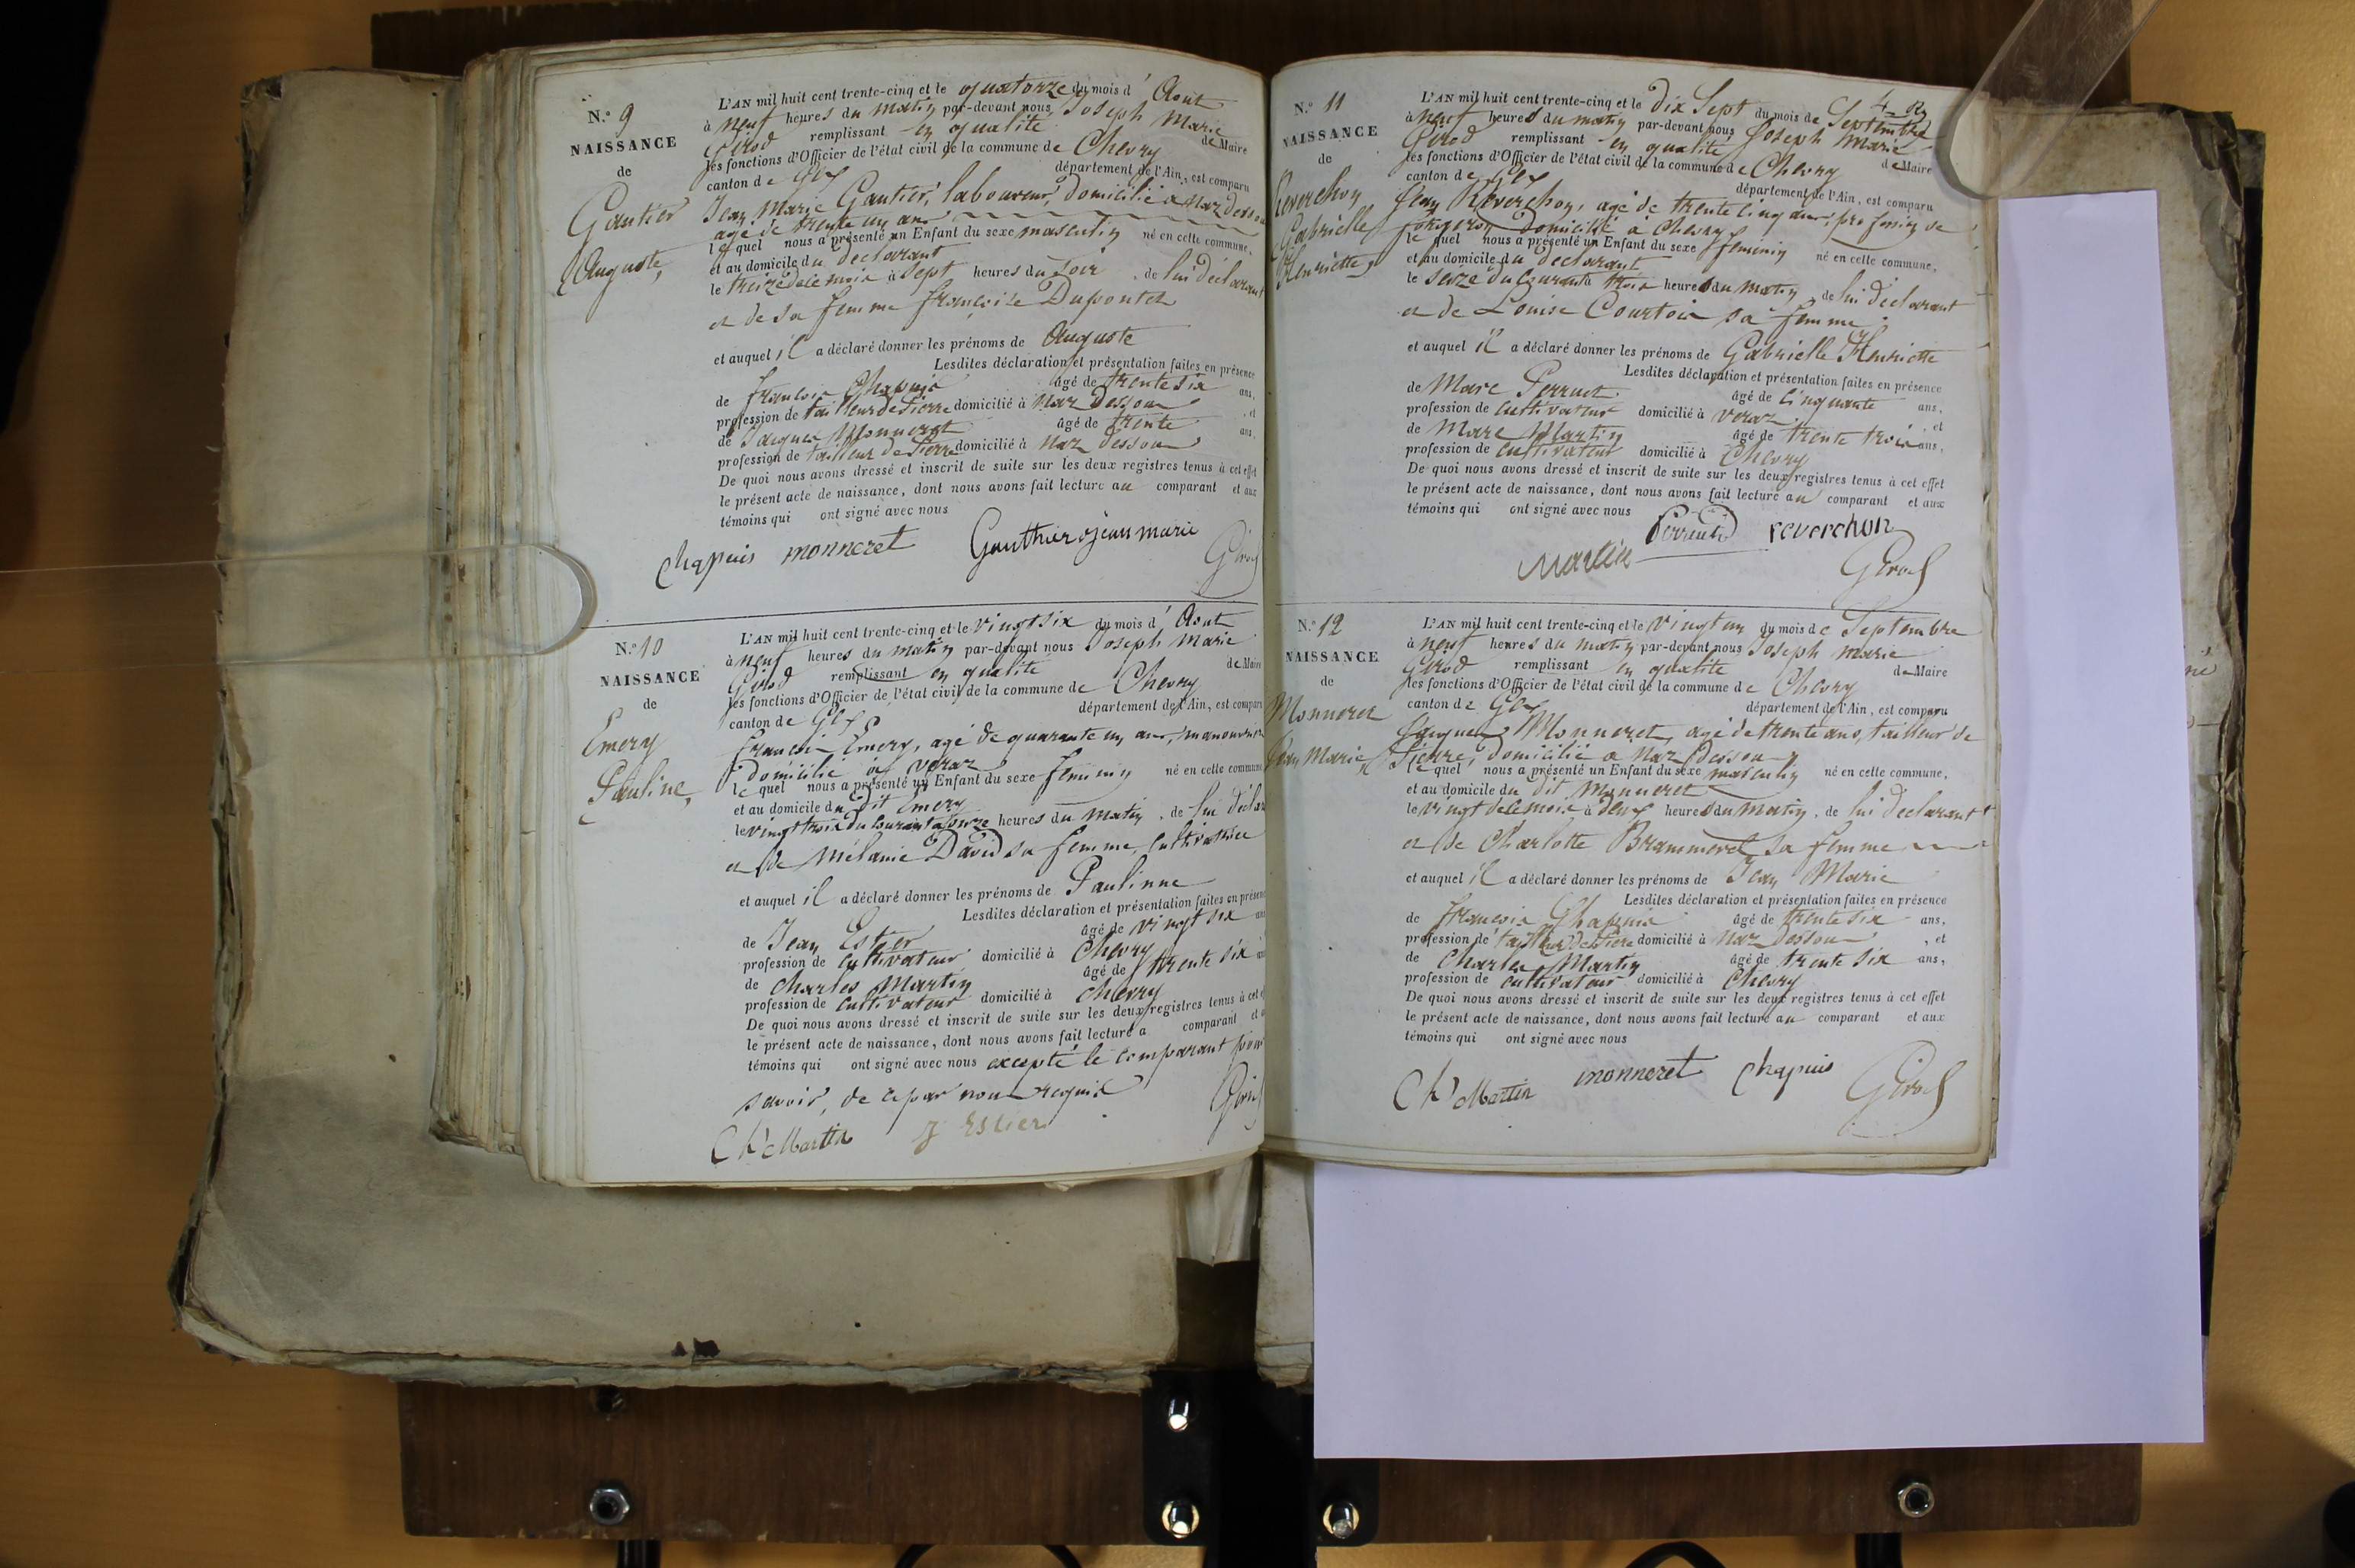 N.º 9
NAISSANCE
de
Gautier
Auguste,
L'AN mil huit cent trente-cinq et le quatorze du mois d' Aout
à neuf heures du matin par-devant nous Joseph Marie
Girod remplissant en qualité de Maire
les fonctions d'Officier de l'état civil de la commune de Chevry
canton de Gex département de l'Ain, est comparu
Jean Marie Gautier, laboureur, domicilié à Naz dessous
agé de trente un ans
le quel nous a présenté un Enfant du sexe masculin né en cette commune,
et au domicile du déclarant
le treize de ce mois à sept heures du soir, de lui déclarant
et de sa femme françoise Dupontet
et auquel il a déclaré donner les prénoms de Auguste
Lesdites déclaration et présentation faites en présence
de françois Chapuis âgé de trente six ans,
profession de tailleur de Pierre domicilié à Naz Dessous, et
de Jacques Monneret âgé de trente ans,
profession de tailleur de Pierre domicilié à Naz Dessous
De quoi nous avons dressé et inscrit de suite sur les deux registres tenus à cet effet
le présent acte de naissance, dont nous avons fait lecture au comparant et aux
témoins qui ont signé avec nous
Chapuis monneret Gauthier jean marie Girod
N.º 10
NAISSANCE
de
Emery
Pauline,
L'AN mil huit cent trente-cinq et le vingt six du mois d' Aout
à neuf heures du matin par-devant nous Joseph Marie
Girod remplissant en qualité de Maire
les fonctions d'Officier de l'état civil de la commune de Chevry
canton de Gex département de l'Ain, est comparu
françois Emery, agé de quarante un ans, manouvrier
domicilié à Veraz
le quel nous a présenté un Enfant du sexe feminin né en cette commune
et au domicile du dit Emery
le vingt trois du courant à onze heures du matin, de lui décla
et de Mélanie David sa femme, cultivatrice
et auquel il a déclaré donner les prénoms de Paulinne
Lesdites déclaration et présentation faites en présence
de Jean Estier âgé de vingt six ans
profession de cultivateur domicilié à Chevry
de Charles Martin âgé de trente six
profession de cultivateur domicilié à Chevry
De quoi nous avons dressé et inscrit de suite sur les deux registres tenus à cet
le présent acte de naissance, dont nous avons fait lecture a comparant et
témoins qui ont signé avec nous excepté le comparant pour
savoir, de ce par nous requis
Girod
Ch Martin J Estier
N.º 11
NAISSANCE
de
Reverchon
Gabrielle
Henriette,
L'AN mil huit cent trente-cinq et le dix Sept du mois de Septembre
à neuf heures du matin par-devant nous Joseph Marie
Girod remplissant en qualité de Maire
les fonctions d'Officier de l'état civil de la commune de Chevry
canton de Gex département de l'Ain, est comparu
Jean Reverchon, agé de trente cinq ans, profession de
forgeron domicilié à Chevry
le quel nous a présenté un Enfant du sexe feminin né en cette commune,
et au domicile du déclarant
le seize du courant à trois heures du matin, de lui déclarant
et de Louise Courtois sa femme
et auquel il a déclaré donner les prénoms de Gabrielle Henriette
Lesdites déclaration et présentation faites en présence
de Marc Perruet âgé de cinquante ans,
profession de cultivateur domicilié à Veraz, et
de Marc Martin âgé de trente trois ans,
profession de cultivateur domicilié à Chevry
De quoi nous avons dressé et inscrit de suite sur les deux registres tenus à cet effet
le présent acte de naissance, dont nous avons fait lecture au comparant et aux
témoins qui ont signé avec nous
reverchon
Martin Girod
N.º 12
NAISSANCE
de
Monneret
Jean Marie,
L'AN mil huit cent trente-cinq et le vingt un du mois de Septembre
à neuf heures du matin par-devant nous Joseph Marie
Girod remplissant en qualité de Maire
les fonctions d'Officier de l'état civil de la commune de Chevry
canton de Gex département de l'Ain, est comparu
Jacques Monneret, agé de trente ans, tailleur de
Pierre, domicilié à Naz Dessous
le quel nous a présenté un Enfant du sexe masculin né en cette commune,
et au domicile du dit Monneret
le vingt de ce mois à deux heures du matin, de lui déclarant
et de Charlotte Brammeret sa femme
et auquel il a déclaré donner les prénoms de Jean Marie
Lesdites déclaration et présentation faites en présence
de françois Chapuis âgé de trente six ans,
profession de tailleur de Pierre domicilié à Naz Dessous, et
de Charles Martin âgé de trente six ans,
profession de cultivateur domicilié à Chevry
De quoi nous avons dressé et inscrit de suite sur les deux registres tenus à cet effet
le présent acte de naissance, dont nous avons fait lecture au comparant et aux
témoins qui ont signé avec nous
Ch Martin monneret Chapuis Girod